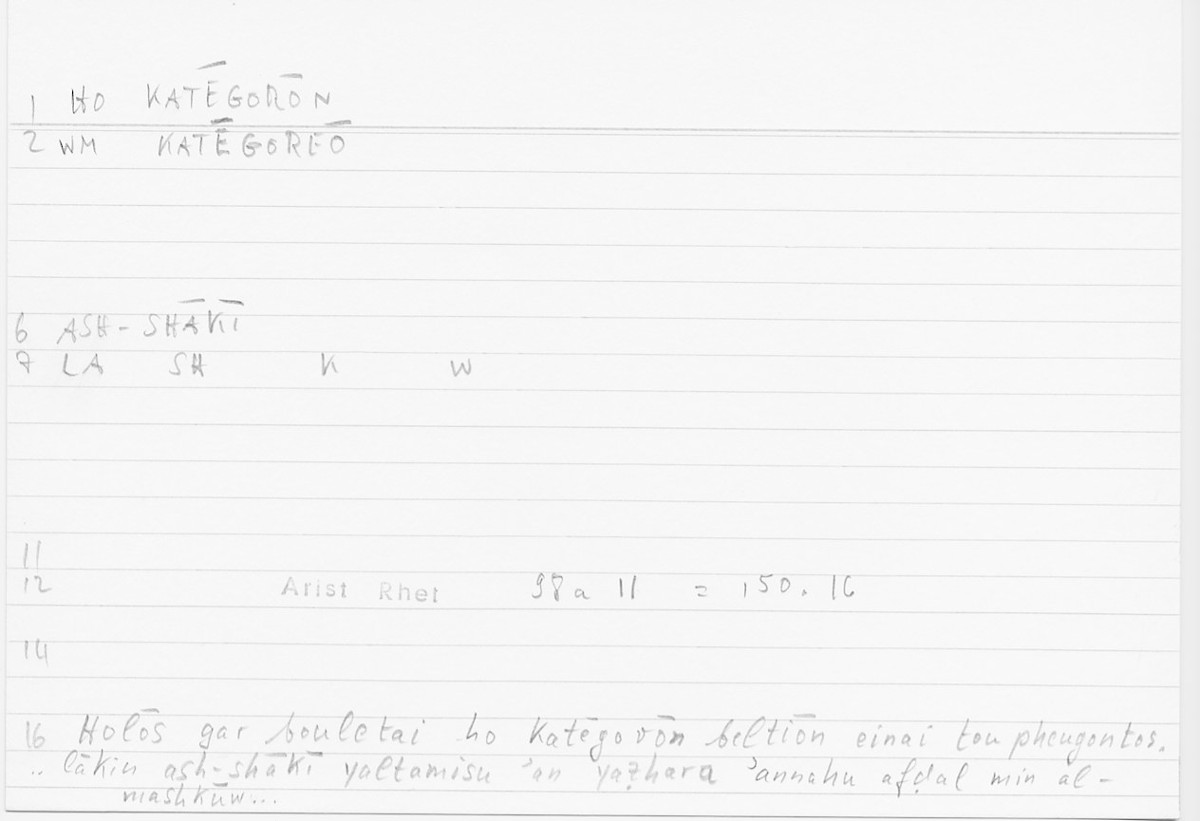 1 HO KATĒGORŌN
2 WM KATĒGOREŌ
6 ASH-SHĀKĪ
7 LA SH K W
11
12 Arist Rhet 98a 11 = 150.16
14
16 Holōs gar bouletai ho katēgorōn beltiōn einai tou pheugontos.
.. lākin ash-shākī yaltamisu ʾan yaẓhara ʾannahu afḍal min al-
mashkūw...